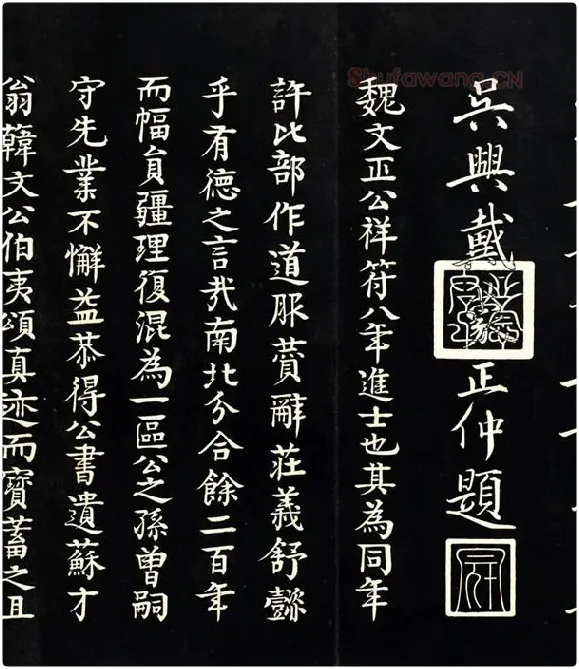 Shufawang.CN
吳興戴正仲題
魏文正公祥符八年進士也其為同年
許比部作道服贊辭莊義舒懿
乎有德之言哉南北分合餘二百年
而幅員疆理復混為一區公之孫曾嗣
守先業不懈益恭得公書遺蘇才
翁韓文公伯夷頌真迹而寶蓄之且